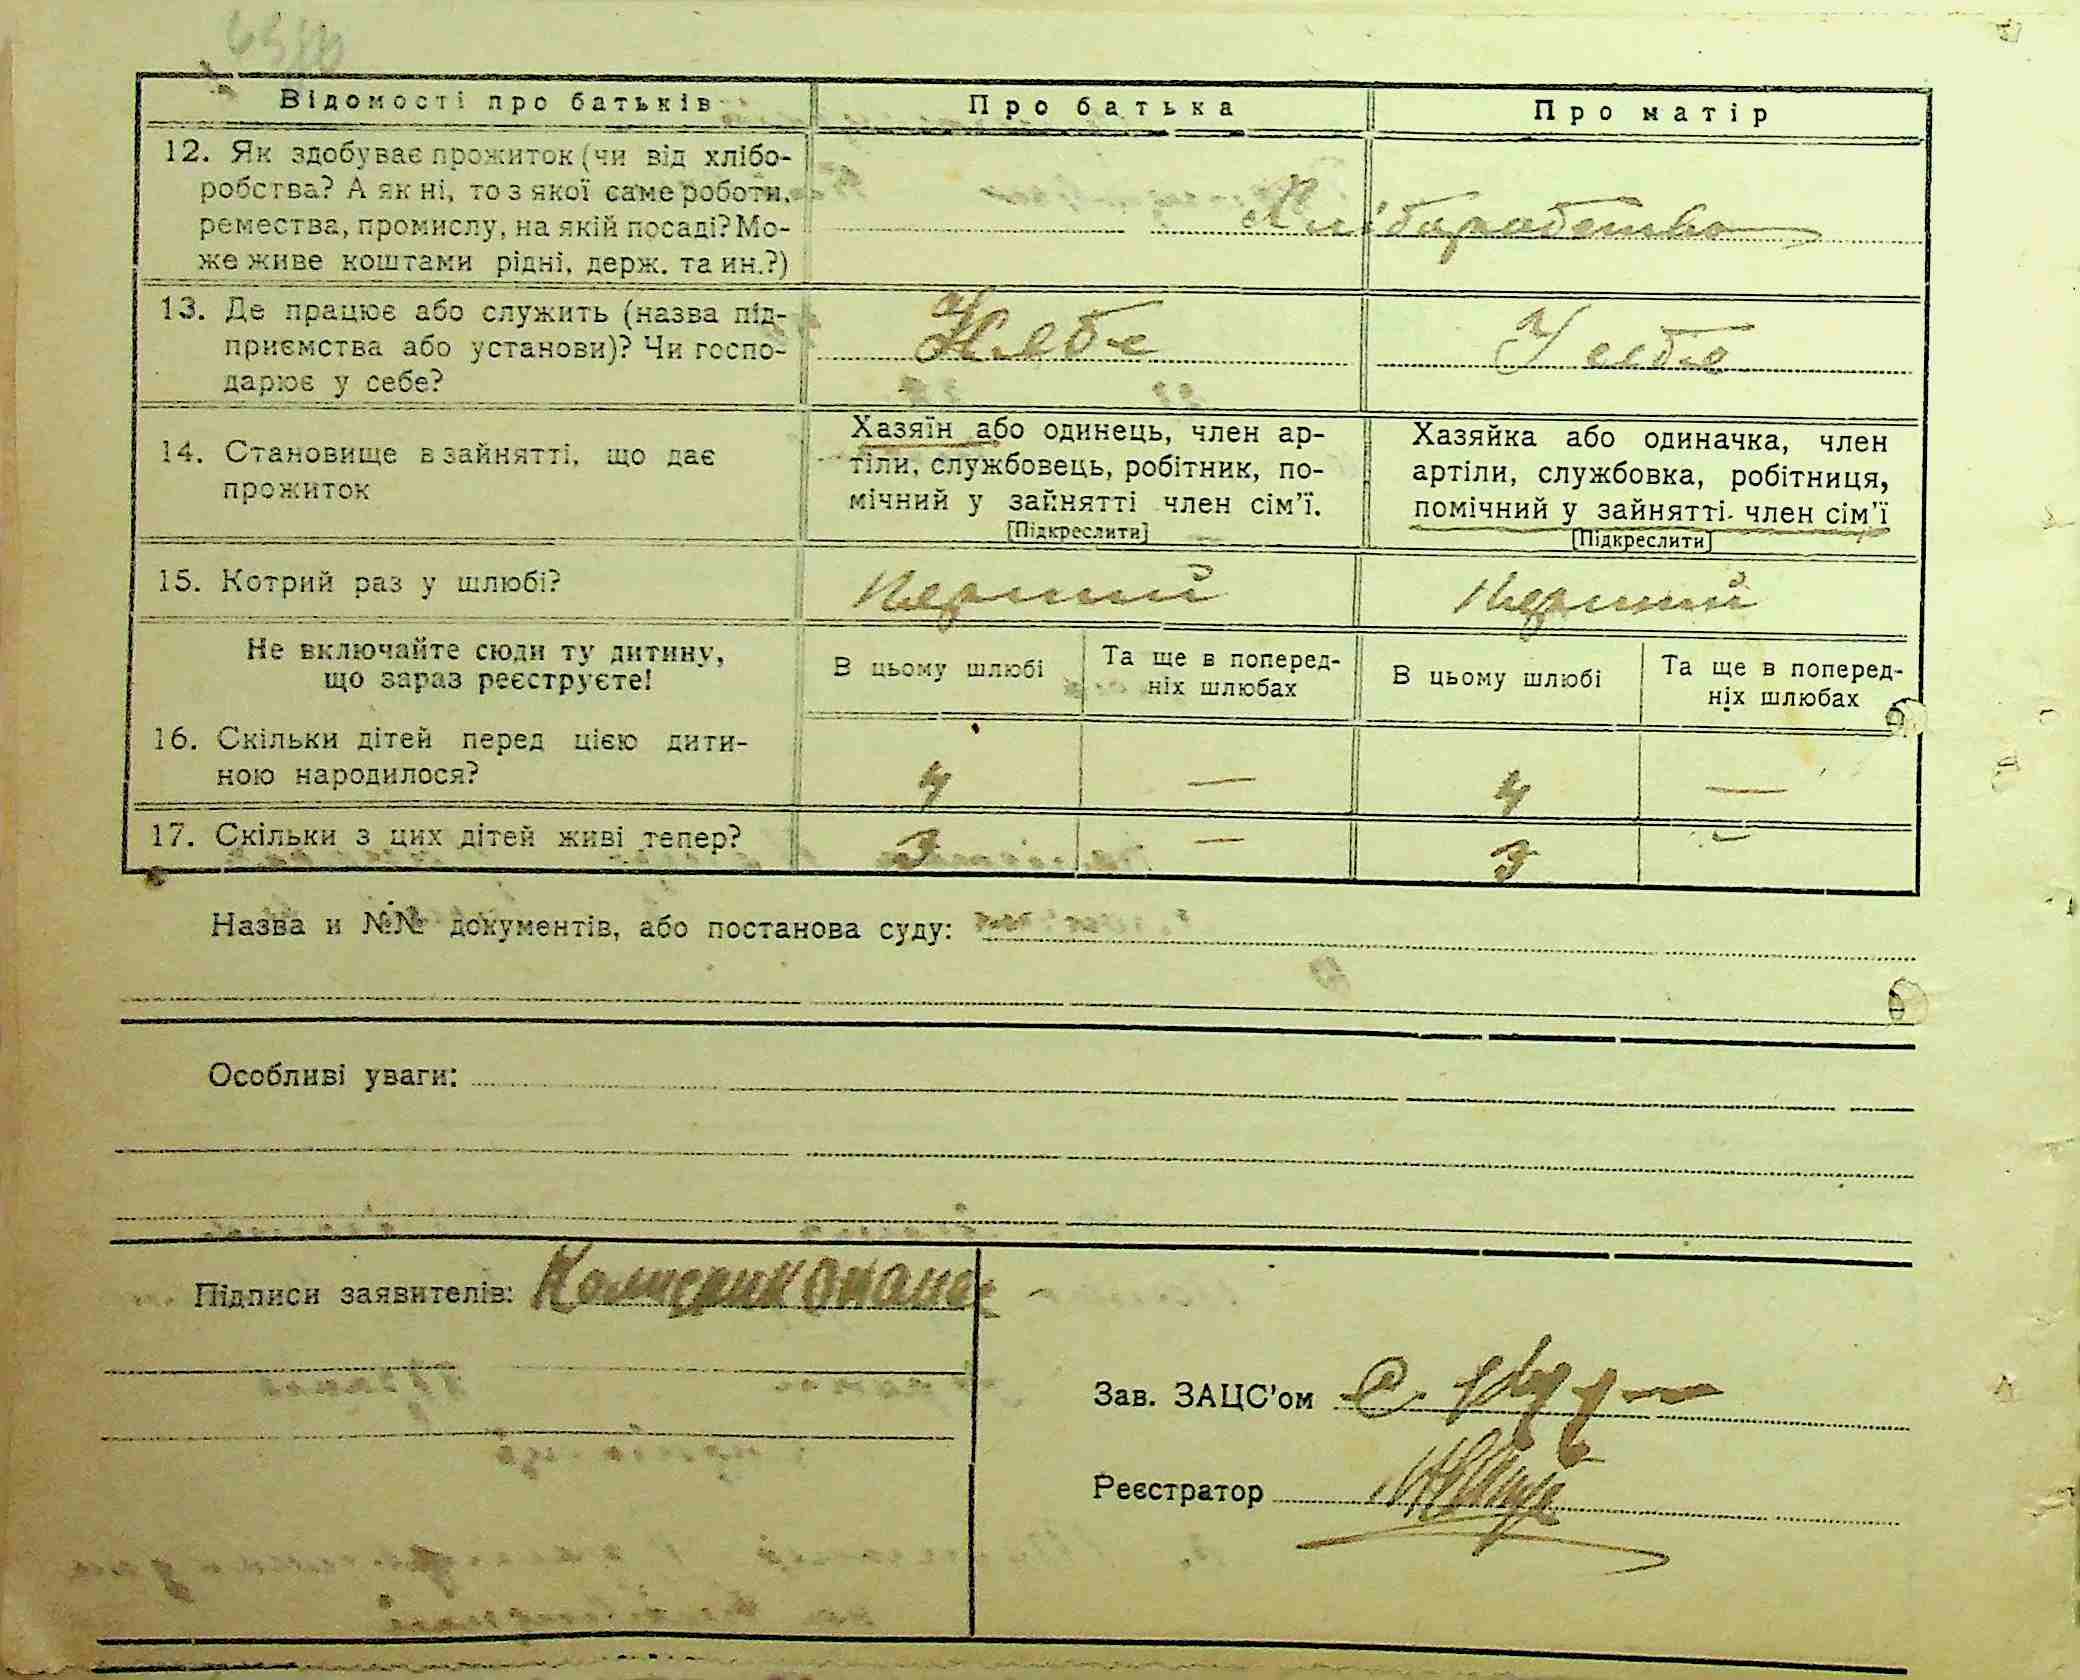 Відомості про батьків
Про батька
Про матір
12. Як здобуває прожиток (чи від хлібо-
робства? А як ні, то з якої саме роботи,
ремества, промислу, на якій посаді? Мо-
же живе коштами рідні, держ. та ин.?)
Хліборобство
13. Де працює або служить (назва під-
приємства або установи)? Чи госпо-
дарює у себе?
У себе
14. Становище в зайнятті, що дає
прожиток
Хазяїн або одинець, член ар-
тіли, службовець, робітник, по-
мічний у зайнятті член сім'ї.
[Підкреслити]
Хазяйка або одиначка, член
артіли, службовка, робітниця,
помічний у зайнятті член сім'ї
[Підкреслити]
15. Котрий раз у шлюбі?
Перший
Перший
Не включайте сюди ту дитину,
що зараз реєструєте!
В цьому шлюбі
Та ще в поперед-
ніх шлюбах
В цьому шлюбі
Та ще в поперед-
ніх шлюбах
16. Скільки дітей перед цією дити-
ною народилося?
4 — 4 —
17. Скільки з цих дітей живі тепер?
3 — 3 —
Назва и №№ документів, або постанова суду:
Особливі уваги:
Підписи заявителів:
Зав. ЗАЦС'ом
Реєстратор